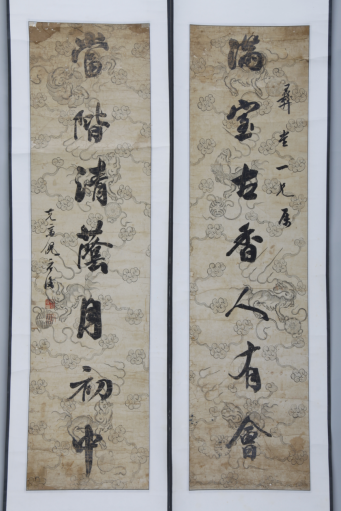 彛老一兄属
滿室古香人有會
當階清蔭月初中